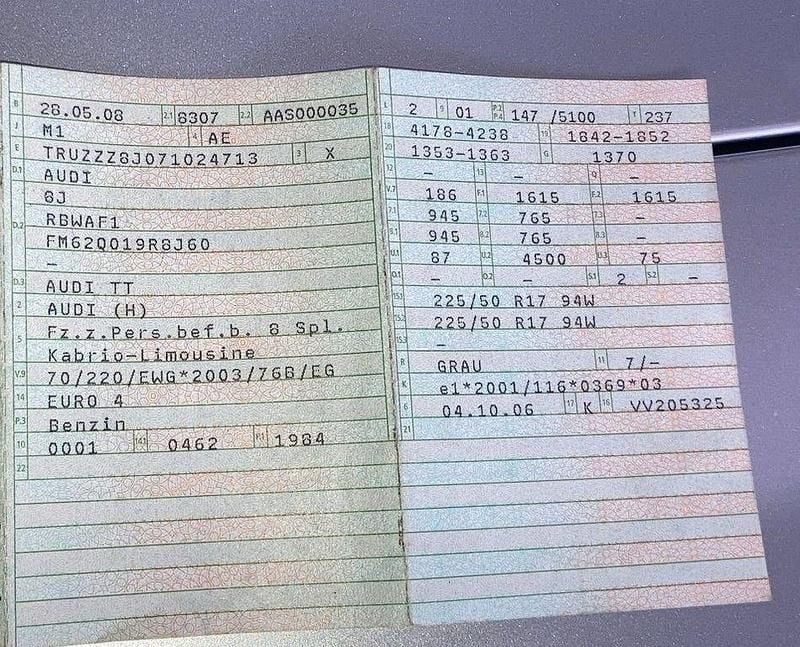 B 28.05.08 2.1 8307 2.2 AAS000035
J M1 4 AE
E TRUZZZ8J071024713 3 X
D.1 AUDI
8J
D.2 RBWAF1
FM62Q019R8J60
–
D.3 AUDI TT
2 AUDI (H)
5 Fz.z.Pers.bef.b. 8 Spl.
Kabrio-Limousine
V.9 70/220/EWG*2003/76B/EG
14 EURO 4
P.3 Benzin
10 0001 14.1 0462 P.1 1984
22
L 2 9 01 P.2 P.4 147 /5100 T 237
18 4178-4238 19 1842-1852
20 1353-1363 G 1370
12 – 13 – Q –
V.7 186 F.1 1615 F.2 1615
7.1 945 7.2 765 7.3 –
8.1 945 8.2 765 8.3 –
U.1 87 U.2 4500 U.3 75
O.1 – O.2 – S.1 2 S.2 –
15.1 225/50 R17 94W
15.2 225/50 R17 94W
15.3 –
R GRAU 11 7/–
K e1*2001/116*0369*03
6 04.10.06 17 K 16 VV205325
21